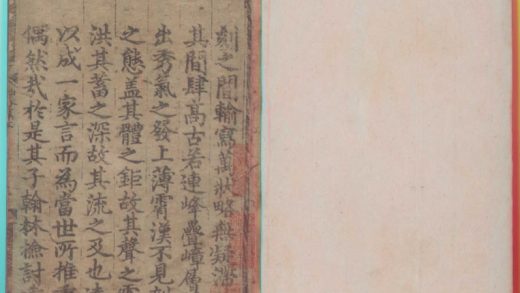 刻之間輸寫萬狀略無凝滯
其間肆髙古若連峰疊嶂
出秀氣之發上薄霄漢不見
之態盖其體之鉅故其聲之
洪其蓄之深故其流之及也
以成一家言而為當世所推
偶然㢤於是其子翰林撿討